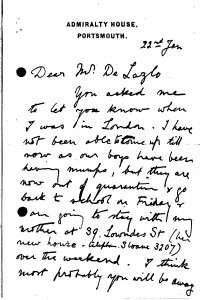 ADMIRALTY HOUSE,
PORTSMOUTH.
22nd Jan
Dear Mr De Laszlo
You asked me
to let you know when
I was in London. I have
not been able to come up till
now as our boys have been
having mumps, but they are
now out of quarantine & go
back to school on Friday &
I am going to stay with my
mother at 39. Lowndes St (her
new house - Sloane 3207)
over the weekend. I think
most probably you will be away